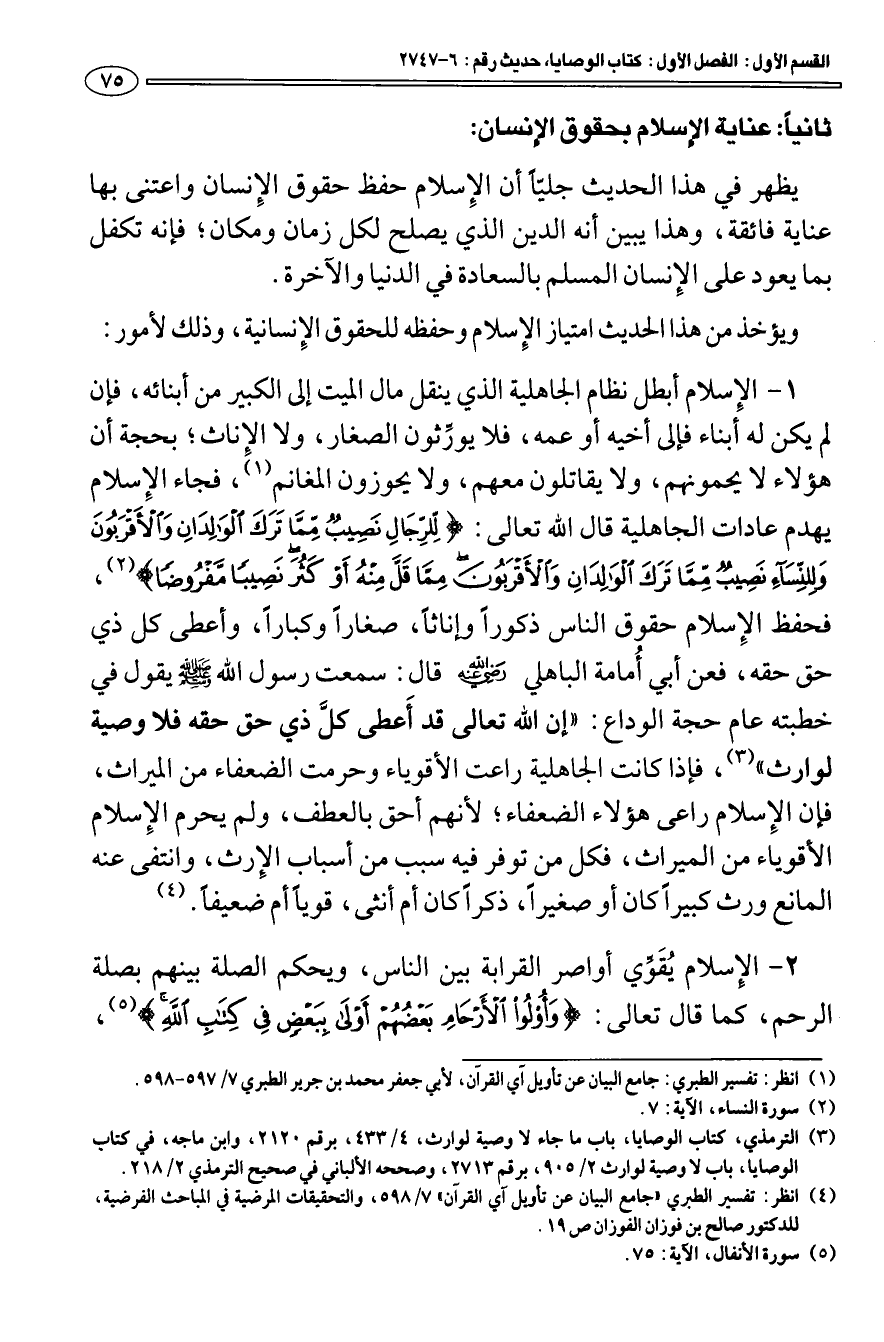 القسم الأول: الفصل الأول: كتاب الوصايا، حديث رقم: ٦-٢٧٤٧
٧٥
ثانياً: عناية الإسلام بحقوق الإنسان:
يظهر في هذا الحديث جليّاً أن الإسلام حفظ حقوق الإنسان واعتنى بها
عناية فائقة، وهذا يبين أنه الدين الذي يصلح لكل زمان ومكان؛ فإنه تكفل
بما يعود على الإنسان المسلم بالسعادة في الدنيا والآخرة.
ويؤخذ من هذا الحديث امتياز الإسلام وحفظه للحقوق الإنسانية، وذلك لأمور:
١- الإسلام أبطل نظام الجاهلية الذي ينقل مال الميت إلى الكبير من أبنائه، فإن
لم يكن له أبناء فإلى أخيه أو عمه، فلا يورِّثون الصغار، ولا الإناث؛ بحجة أن
هؤلاء لا يحمونهم، ولا يقاتلون معهم، ولا يحوزون المغانم(١)، فجاء الإسلام
يهدم عادات الجاهلية قال الله تعالى: ﴿لِّلرِّجَالِ نَصِيبٌ مِّمَّا تَرَكَ ٱلْوَٰلِدَانِ وَٱلْأَقْرَبُونَ
وَلِلنِّسَآءِ نَصِيبٌ مِّمَّا تَرَكَ ٱلْوَٰلِدَانِ وَٱلْأَقْرَبُونَ مِمَّا قَلَّ مِنْهُ أَوْ كَثُرَ ۚ نَصِيبًا مَّفْرُوضًا﴾(٢)،
فحفظ الإسلام حقوق الناس ذكوراً وإناثاً، صغاراً وكباراً، وأعطى كل ذي
حق حقه، فعن أبي أُمامة الباهلي رضي الله عنه قال: سمعت رسول الله ﷺ يقول في
خطبته عام حجة الوداع: «إن الله تعالى قد أَعطى كلَّ ذي حق حقه فلا وصية
لوارث»(٣)، فإذا كانت الجاهلية راعت الأقوياء وحرمت الضعفاء من الميراث،
فإن الإسلام راعى هؤلاء الضعفاء؛ لأنهم أحق بالعطف، ولم يحرم الإسلام
الأقوياء من الميراث، فكل من توفر فيه سبب من أسباب الإرث، وانتفى عنه
المانع ورث كبيراً كان أو صغيراً، ذكراً كان أم أنثى، قوياً أم ضعيفاً.(٤)
٢- الإسلام يُقَوِّي أواصر القرابة بين الناس، ويحكم الصلة بينهم بصلة
الرحم، كما قال تعالى: ﴿وَأُوْلُواْ ٱلْأَرْحَامِ بَعْضُهُمْ أَوْلَىٰ بِبَعْضٍ فِى كِتَٰبِ ٱللَّهِ ۚ﴾(٥)،
(١) انظر: تفسير الطبري: جامع البيان عن تأويل آي القرآن، لأبي جعفر محمد بن جرير الطبري ٧/ ٥٩٧-٥٩٨.
(٢) سورة النساء، الآية: ٧.
(٣) الترمذي، كتاب الوصايا، باب ما جاء لا وصية لوارث، ٤/ ٤٣٣، برقم ٢١٢٠، وابن ماجه، في كتاب
الوصايا، باب لا وصية لوارث ٢/ ٩٠٥، برقم ٢٧١٣، وصححه الألباني في صحيح الترمذي ٢/ ٢١٨.
(٤) انظر: تفسير الطبري «جامع البيان عن تأويل آي القرآن» ٧/ ٥٩٨، والتحقيقات المرضية في المباحث الفرضية،
للدكتور صالح بن فوزان الفوزان ص ١٩.
(٥) سورة الأنفال، الآية: ٧٥.